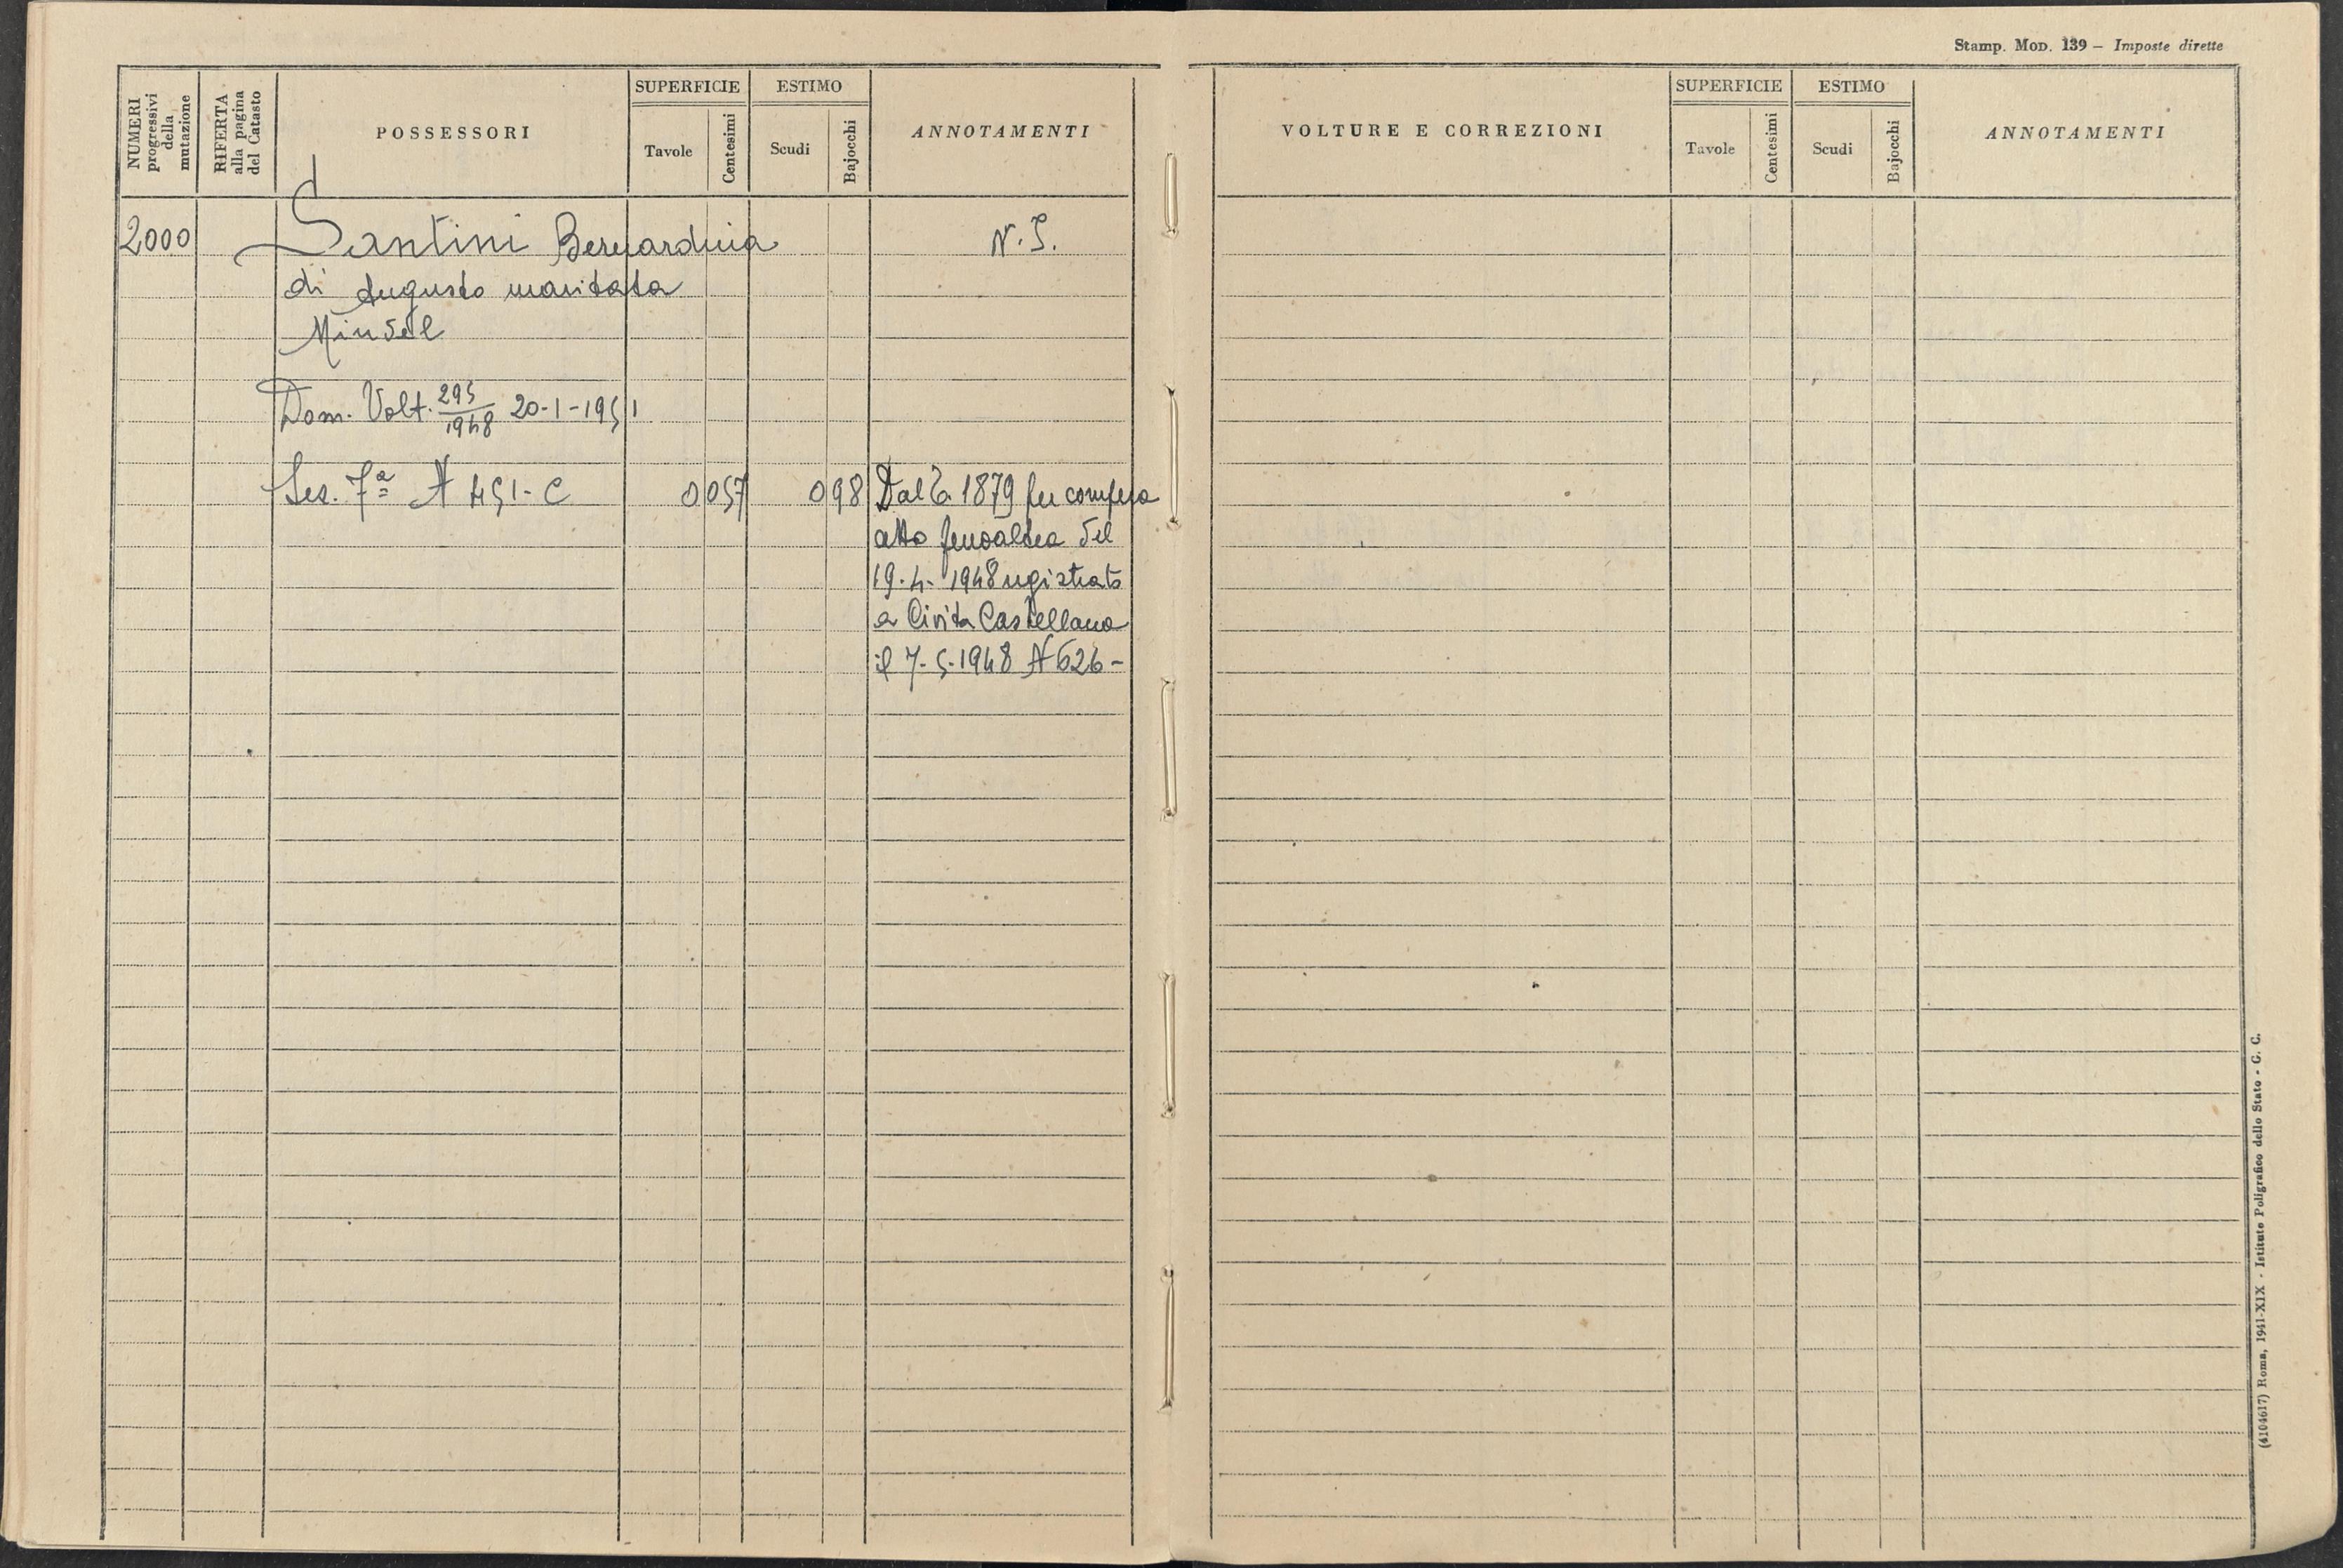 Stamp. Mod. 139 – Imposte dirette
NUMERI progressivi della mutazione
RIFERTA alla pagina del Catasto
POSSESSORI
SUPERFICIE
Tavole
Centesimi
ESTIMO
Scudi
Bajocchi
ANNOTAMENTI
VOLTURE E CORREZIONI
SUPERFICIE
Tavole
Centesimi
ESTIMO
Scudi
Bajocchi
ANNOTAMENTI
2000 Santini Bernardina N.I.
di Augusto maritata
Dom. Volt. 295/1948 20-1-1951
Sez. 7ª N 451-C 0 057 0 98 Dal C. 1879 per compera
atto del
19-4-1948 registrato
a Civita Castellana
il 7-5-1948 N 626-
(4104617) Roma, 1941-XIX - Istituto Poligrafico dello Stato - G. C.